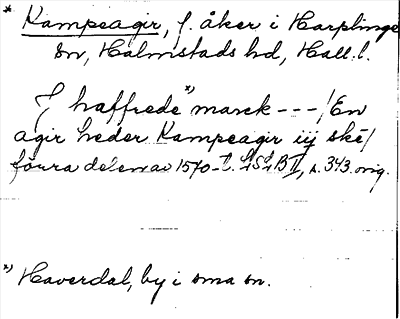 * Kampeagir, f. åker i Harplinge
sn, Halmstads hd, Hall. l.
J haffrede *) marck --- / En
agir heder Kampeagir iij ske /
föura 1570 LSLB II, s. 343. orig.
*) Haverdal, by i sma sn.